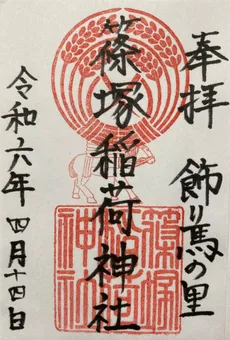 奉拝
飾り馬の里
篠塚稲荷神社
令和六年四月十四日
篠塚稲荷神社